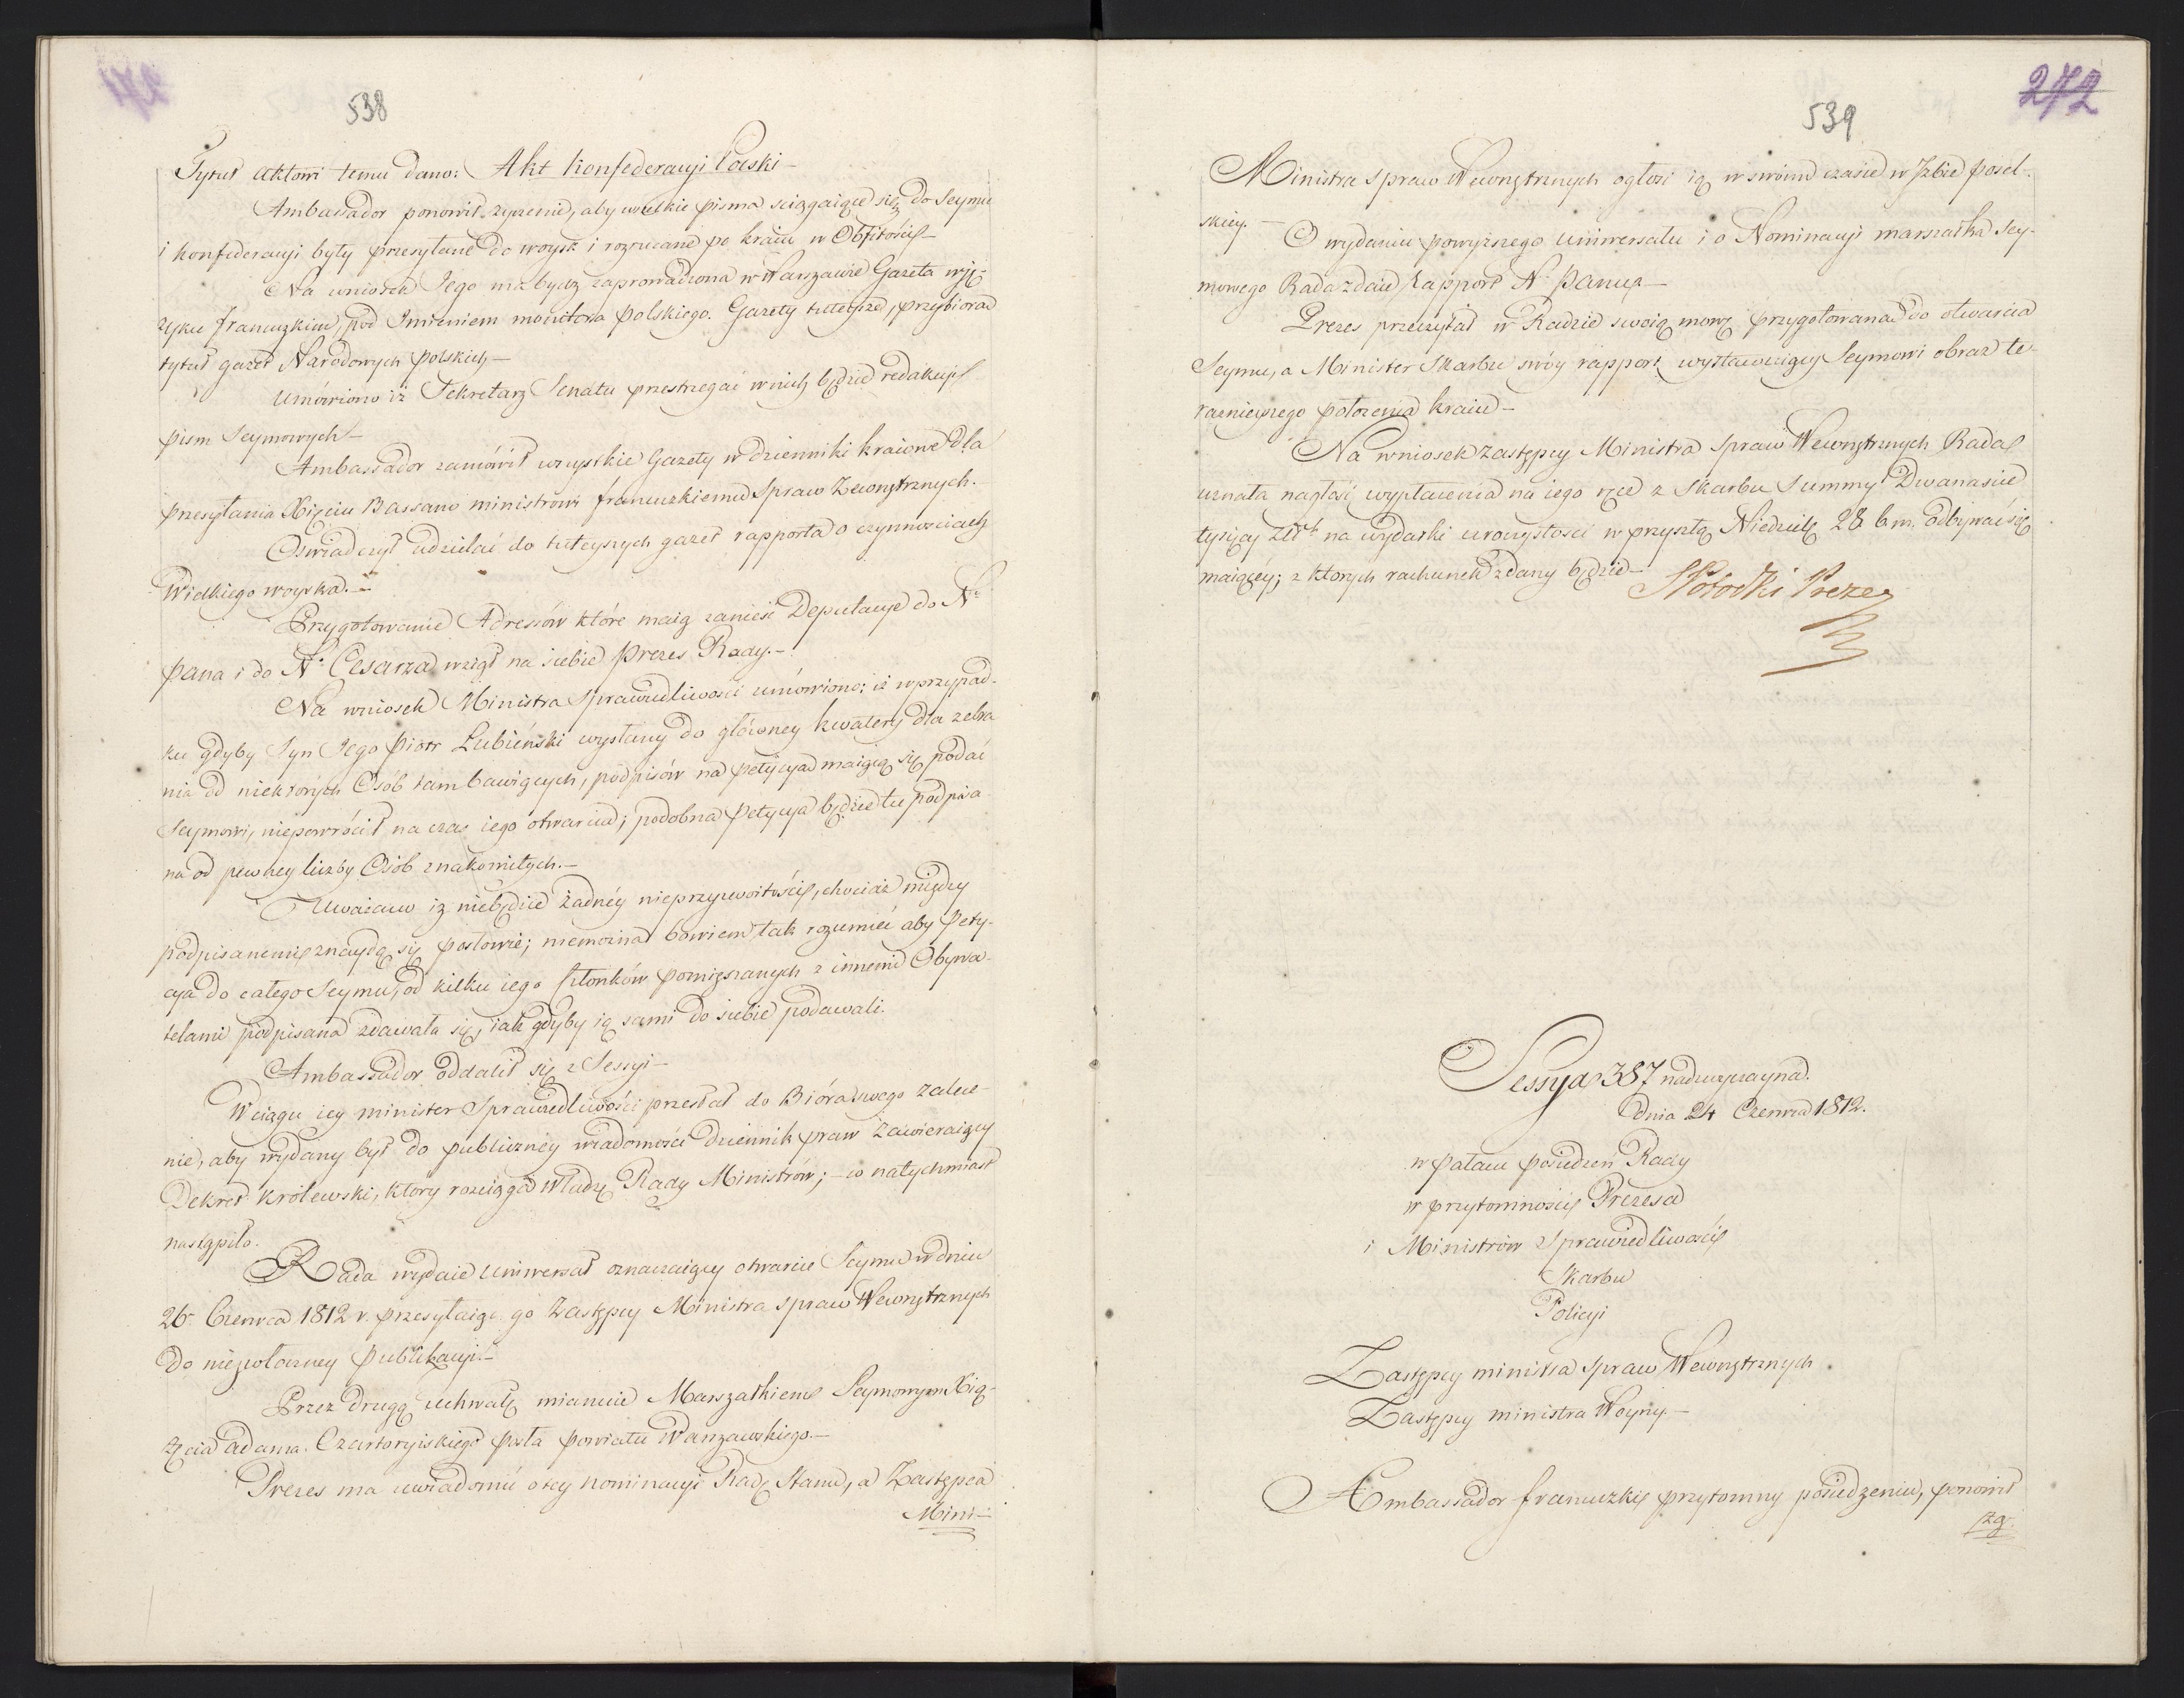 538
Tytuł aktowi temu dano: Akt Konfederacyi Polski –
Ambassador ponowił życzenie, aby wszelkie pisma sciągaiące się do Seymu
i konfederacyi były przesyłane do woysk i rozrucane po kraiu w Obfitości –
Na wniosek Jego ma bydz zaprowadzona w Warszawie Gazeta w ję-
zyku francuzkim, pod Imieniem monitora polskiego. Gazety tuteysze, przybiorą
tytuł gazet Narodowych polskich –
Umówiono iż Sekretarz Senatu przestrzegać w nich będzie redakcyi
pism Seymowych –
Ambassador zamówił wszystkie Gazety w dzienniki kraiowe dla
przesyłania Xięciu Bassano ministrowi francuzkiemu Spraw Zewnętrznych.
Oświadczył udzielać do tuteyszych gazet rapporta o czynnościach
Wielkiego woyska. –
Przygotowanie Adressów które maią zanieść Deputacye do N.
pana i do N. Cesarza wziął na siebie Prezes Rady. –
Na wniosek Ministra Sprawiedliwości umówiono; iż w przypad-
ku gdyby Syn Jego Piotr Łubieński wysłany do główney kwatery dla zebra
nia od niektórych Osób tam bawiących, podpisów na petycyą maiącą się podać
Seymowi, niepowrócił na czas iego otwarcia; podobna petycya będzie tu podpisa
na od pewney liczby Osób znakomitych. –
Uważano iż niebędzie żadnéy nieprzyzwoitości, chociaż między
podpisanemi znaydą się posłowie; niemożna bowiem tak rozumieć aby Pety-
cya do całego Seymu, od kilku iego Członków pomięszanych z innemi Obywa-
telami podpisana zdawała się, iak gdyby ią sami do siebie podawali.
Ambassador oddalił się z Sessyi –
W ciągu iey minister Sprawiedliwości przesłał do Bióra swego zalece-
nie, aby wydany był do publicznéy wiadomości dziennik praw zawieraiący
Dekret Królewski, który rozciąga władzę Rady Ministrów; – co natychmiast
nastąpiło.
Rada wydaie Uniwersał oznaczaiący otwarcie Seymu w dniu
26. Czerwca 1812 r. przesyłaiąc go Zastępcy Ministra Spraw Wewnętrznych
do niezwłoczney publikacyi. –
Przez drugą uchwałę mianuie Marszałkiem Seymowym Xią-
żęcia Adama Czartoryiskiego posła powiatu Warszawskiego. –
Prezes ma uwiadomić o tey nominacyi Radę Stanu, a Zastępca
Mini-
272
539
Ministra Spraw Wewnętrznych ogłosi ią w swoim czasie w Izbie posel-
skiey. –
O wydaniu powyższego uniwersału i o Nominacyi marszałka Sey-
mowego Rada zdaie rapport N. Panu –
Prezes przeczytał w Radzie swoią mowę przygotowaną do otwarcia
Seymu, a Minister Skarbu swóy rapport wystawuiący Seymowi obraz te-
raźnieyszego położenia kraiu –
Na wniosek Zastępcy Ministra Spraw Wewnętrznych Rada
uznała nagłość wypłacenia na iego ręce z Skarbu Summy Dwanaście
tysięcy Złt. na wydatki uroczystości w przyszłą Niedzielę 28 b. m. odbywać się
maiącéy; z których rachunek zdany będzie –
SPotocki Prezes
Sessya 387 nadzwyczayna.
Dnia 24 Czerwca 1812.
w pałacu posiedzeń Rady
w przytomności Prezesa
i Ministrów Sprawiedliwości
Skarbu
Policyi
Zastępcy ministra Spraw Wewnętrznych
Zastępcy ministra Woyny. –
Ambassador francuzki przytomny posiedzeniu, ponowił